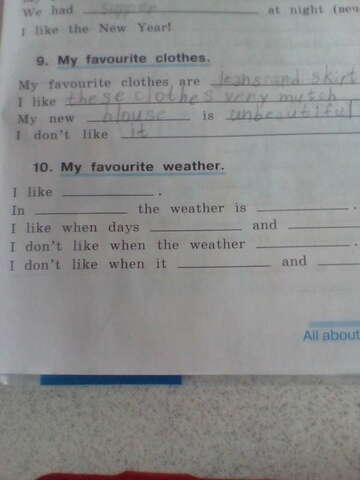 We had supper at night (new
I like the New Year!
9. My favourite clothes.
My favourite clothes are Jeans and skirt
I like these clothes very mutch
My new blouse is unbeautiful
I don't like it
10. My favourite weather.
I like ____________.
In ____________ the weather is ____________.
I like when days ____________ and ____________
I don't like when the weather ____________.
I don't like when it ____________ and ____________
All about